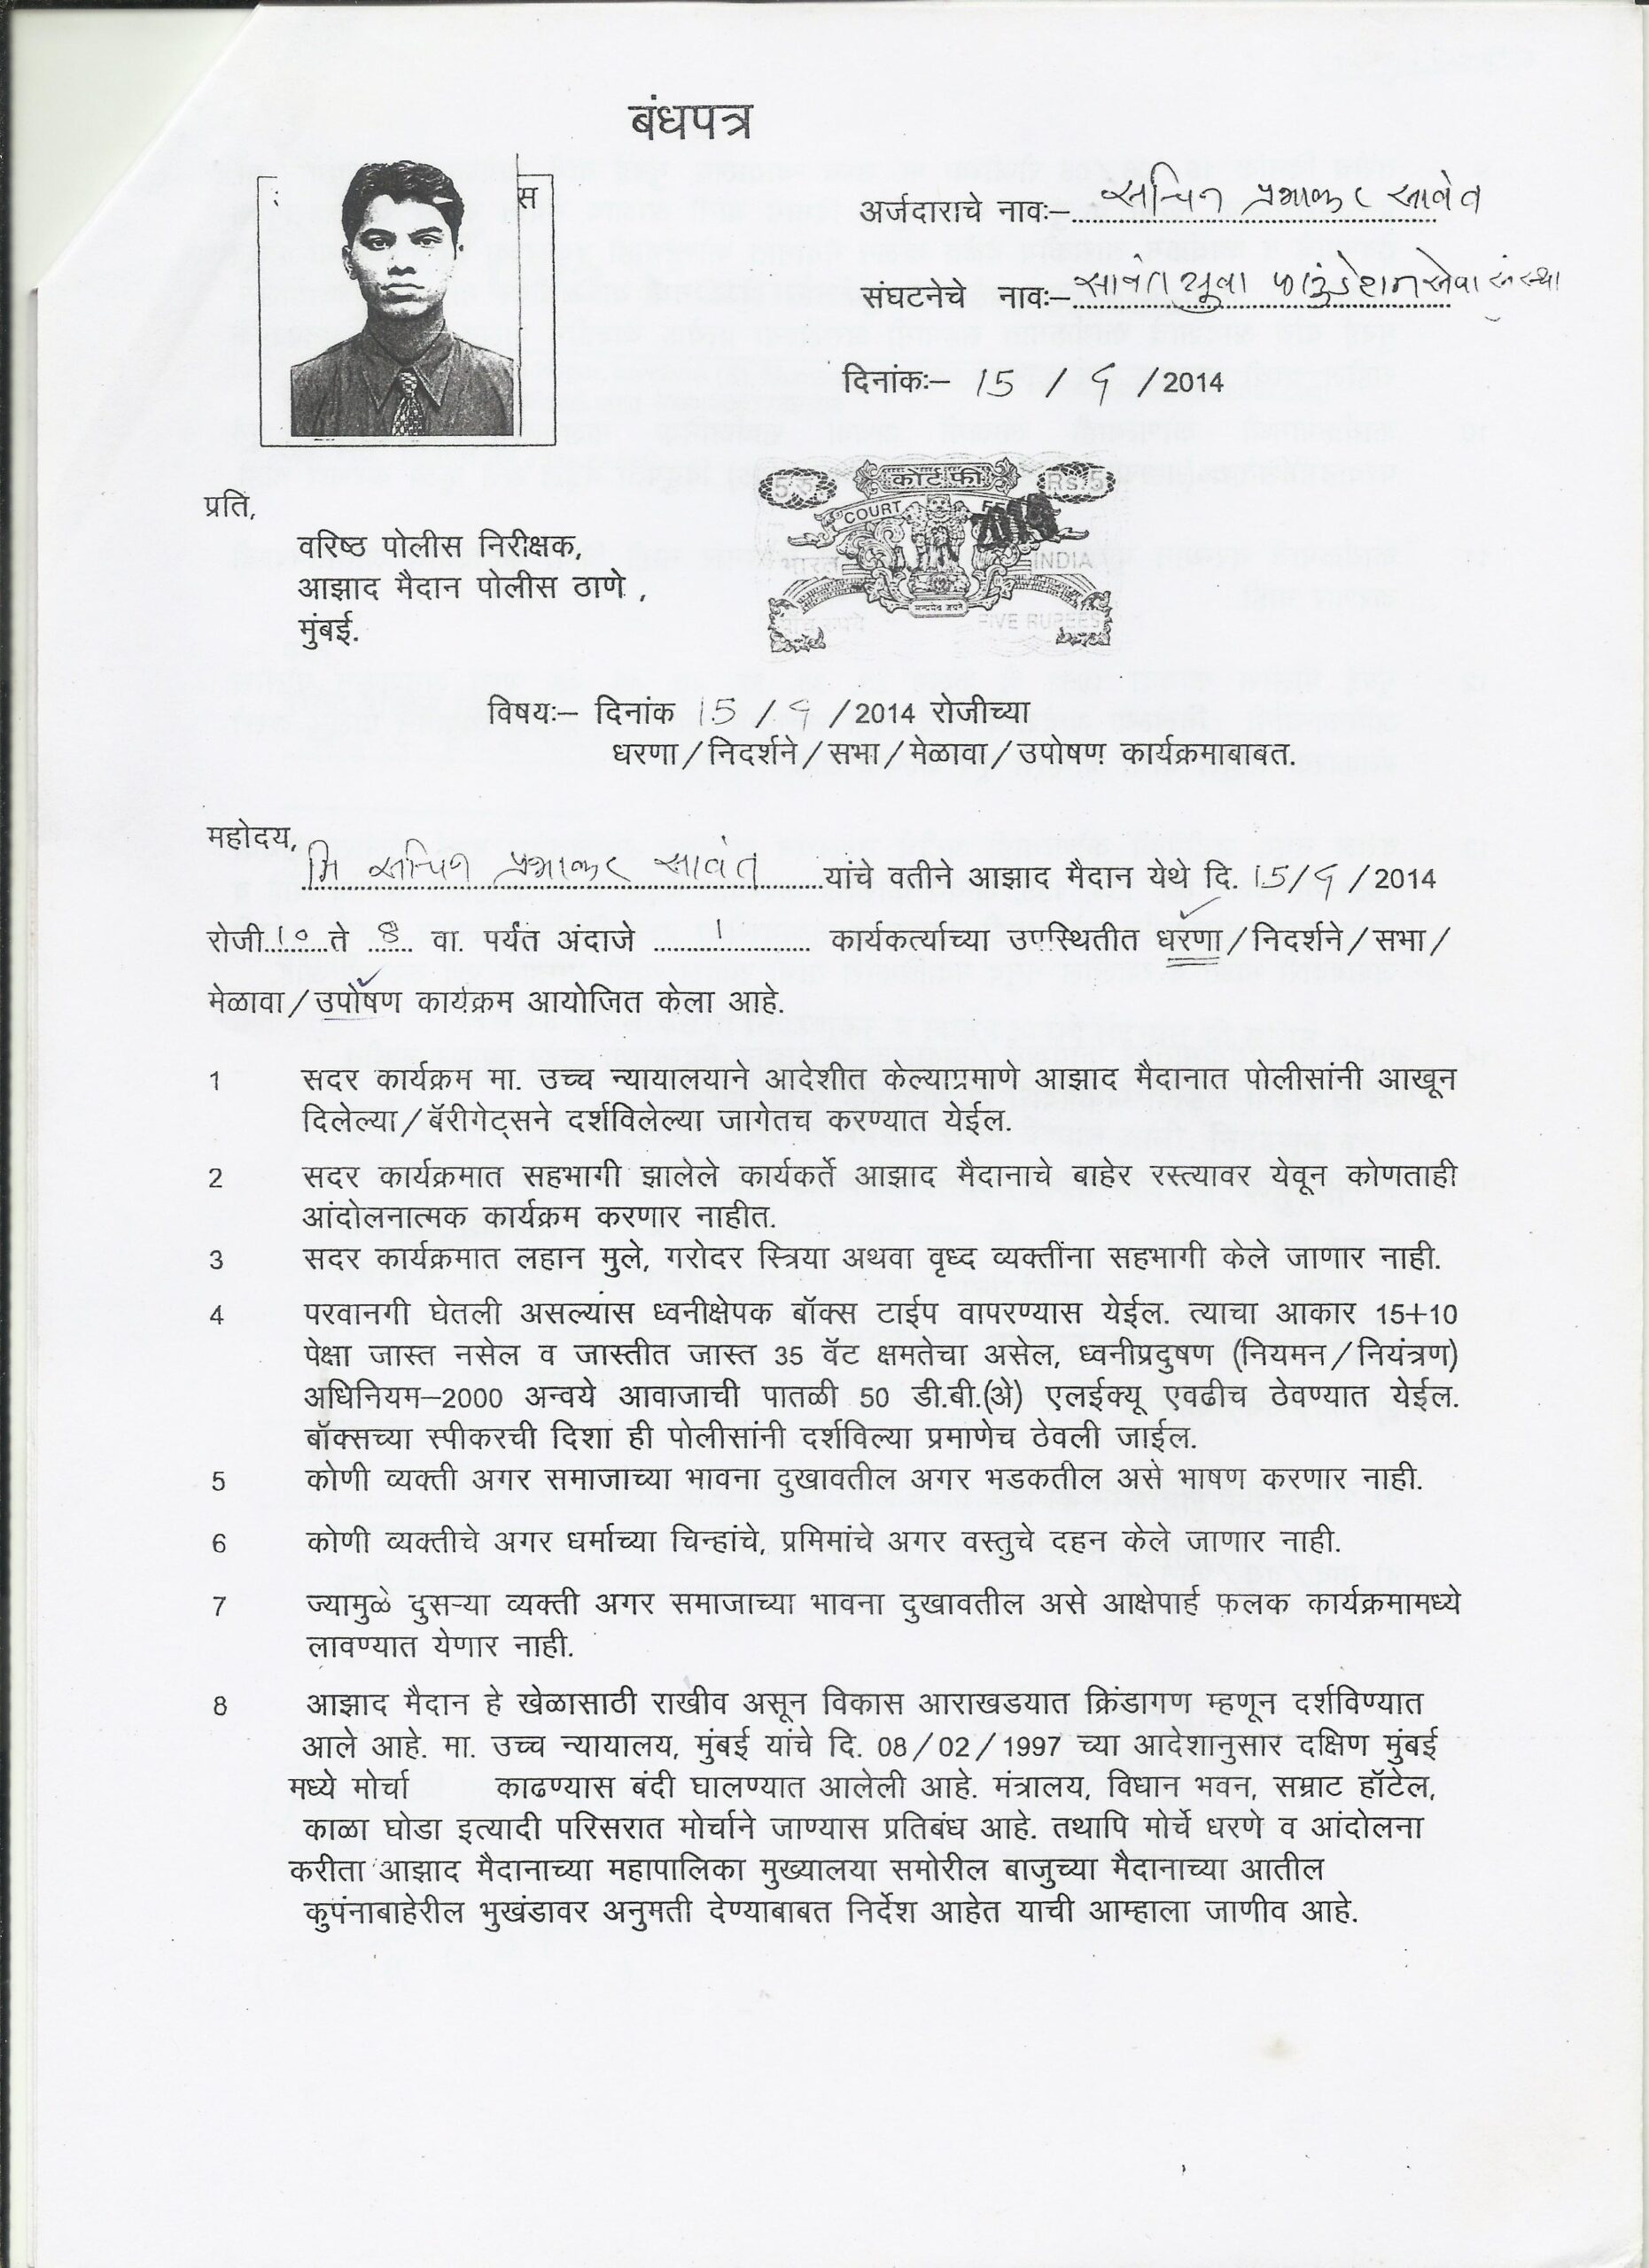 बंधपत्र
स
अर्जदाराचे नावः– सचिन प्रभाकर सावंत
संघटनेचे नावः– सावंत युवा फाउंडेशन सेवा संस्था
दिनांकः– 15 / 9 /2014
5 रु. कोर्ट फी Rs.5
COURT FEE
भारत INDIA
सत्यमेव जयते
पाँच रुपये FIVE RUPEES
प्रति,
वरिष्ठ पोलीस निरीक्षक,
आझाद मैदान पोलीस ठाणे ,
मुंबई.
विषयः– दिनांक 15 / 9 /2014 रोजीच्या
धरणा/निदर्शने/सभा/मेळावा/उपोषण कार्यक्रमाबाबत.
महोदय,
मि सचिन प्रभाकर सावंत यांचे वतीने आझाद मैदान येथे दि. 15/9 /2014
रोजी..10..ते ..8.. वा. पर्यंत अंदाजे .....1..... कार्यकर्त्याच्या उपस्थितीत धरणा/निदर्शने/सभा/
मेळावा/उपोषण कार्यक्रम आयोजित केला आहे.
1 सदर कार्यक्रम मा. उच्च न्यायालयाने आदेशीत केल्याप्रमाणे आझाद मैदानात पोलीसांनी आखून
दिलेल्या/बॅरीगेट्सने दर्शविलेल्या जागेतच करण्यात येईल.
2 सदर कार्यक्रमात सहभागी झालेले कार्यकर्ते आझाद मैदानाचे बाहेर रस्त्यावर येवून कोणताही
आंदोलनात्मक कार्यक्रम करणार नाहीत.
3 सदर कार्यक्रमात लहान मुले, गरोदर स्त्रिया अथवा वृध्द व्यक्तींना सहभागी केले जाणार नाही.
4 परवानगी घेतली असल्यास ध्वनीक्षेपक बॉक्स टाईप वापरण्यास येईल. त्याचा आकार 15+10
पेक्षा जास्त नसेल व जास्तीत जास्त 35 वॅट क्षमतेचा असेल, ध्वनीप्रदुषण (नियमन/नियंत्रण)
अधिनियम–2000 अन्वये आवाजाची पातळी 50 डी.बी.(अे) एलईक्यू एवढीच ठेवण्यात येईल.
बॉक्सच्या स्पीकरची दिशा ही पोलीसांनी दर्शविल्या प्रमाणेच ठेवली जाईल.
5 कोणी व्यक्ती अगर समाजाच्या भावना दुखावतील अगर भडकतील असे भाषण करणार नाही.
6 कोणी व्यक्तीचे अगर धर्माच्या चिन्हांचे, प्रमिमांचे अगर वस्तुचे दहन केले जाणार नाही.
7 ज्यामुळे दुसऱ्या व्यक्ती अगर समाजाच्या भावना दुखावतील असे आक्षेपार्ह फलक कार्यक्रमामध्ये
लावण्यात येणार नाही.
8 आझाद मैदान हे खेळासाठी राखीव असून विकास आराखडयात क्रिंडागण म्हणून दर्शविण्यात
आले आहे. मा. उच्च न्यायालय, मुंबई यांचे दि. 08/02/1997 च्या आदेशानुसार दक्षिण मुंबई
मध्ये मोर्चा काढण्यास बंदी घालण्यात आलेली आहे. मंत्रालय, विधान भवन, सम्राट हॉटेल,
काळा घोडा इत्यादी परिसरात मोर्चाने जाण्यास प्रतिबंध आहे. तथापि मोर्चे धरणे व आंदोलना
करीता आझाद मैदानाच्या महापालिका मुख्यालया समोरील बाजुच्या मैदानाच्या आतील
कुपंनाबाहेरील भुखंडावर अनुमती देण्याबाबत निर्देश आहेत याची आम्हाला जाणीव आहे.